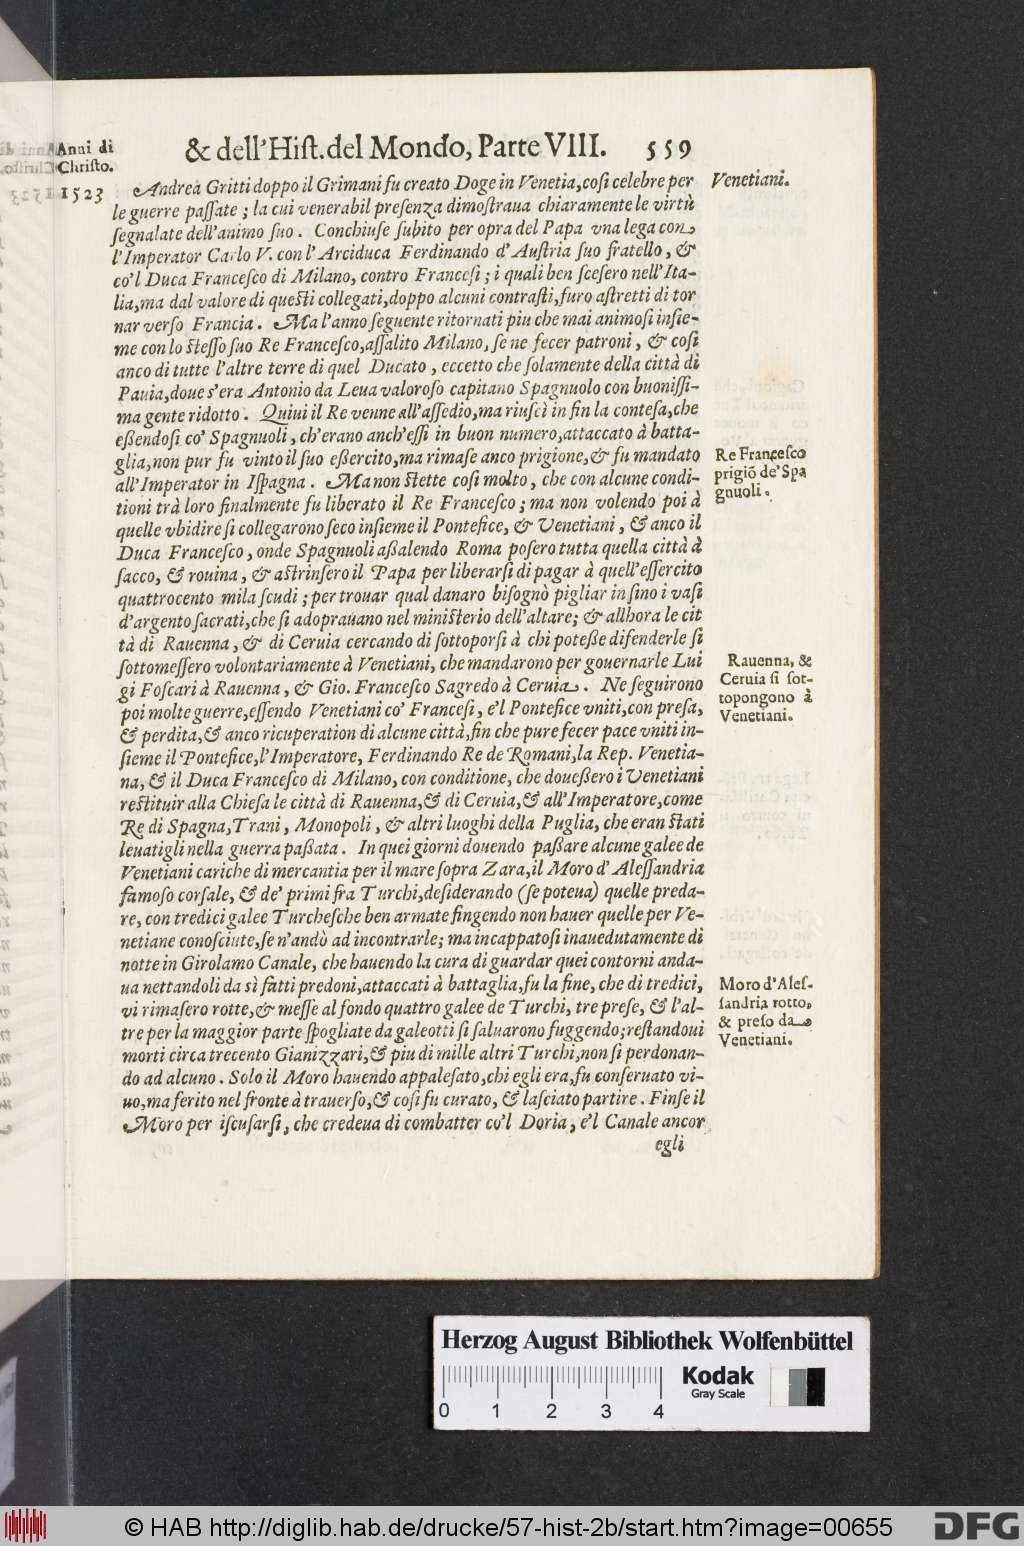 Anni di
Christo.
& dell'Hiſt. del Mondo, Parte VIII. 559
1523
Andrea Gritti doppo il Grimani fu creato Doge in Venetia, coſi celebre per
le guerre paſſate ; la cui venerabil preſenza dimoſtraua chiaramente le virtù
ſegnalate dell'animo ſuo . Conchiuſe ſubito per opra del Papa vna lega con
l'Imperator Carlo V. con l'Arciduca Ferdinando d'Auſtria ſuo fratello , &
co'l Duca Franceſco di Milano, contro Franceſi ; i quali ben ſceſero nell'Ita-
lia, ma dal valore di queſti collegati, doppo alcuni contraſti, furo aſtretti di tor
nar verſo Francia . Ma l'anno ſeguente ritornati piu che mai animoſi inſie-
me con lo ſteſſo ſuo Re Franceſco, aſſalito Milano, ſe ne fecer patroni , & coſi
anco di tutte l'altre terre di quel Ducato , eccetto che ſolamente della città di
Pauia, doue s'era Antonio da Leua valoroſo capitano Spagnuolo con buoniſſi-
ma gente ridotto . Quiui il Re venne all'aſſedio, ma riuſcì in fin la conteſa, che
eßendoſi co' Spagnuoli , ch'erano anch'eſſi in buon numero, attaccato à batta-
glia, non pur fu vinto il ſuo eßercito, ma rimaſe anco prigione, & fu mandato
all'Imperator in Iſpagna . Ma non ſtette coſi molto , che con alcune condi-
tioni trà loro finalmente fu liberato il Re Franceſco ; ma non volendo poi à
quelle vbidire ſi collegarono ſeco inſieme il Pontefice, & Venetiani , & anco il
Duca Franceſco , onde Spagnuoli aßalendo Roma poſero tutta quella città à
ſacco, & rouina , & aſtrinſero il Papa per liberarſi di pagar à quell'eſſercito
quattrocento mila ſcudi ; per trouar qual danaro biſognò pigliar inſino i vaſi
d'argento ſacrati, che ſi adoprauano nel miniſterio dell'altare; & allhora le cit
tà di Rauenna , & di Ceruia cercando di ſottoporſi à chi poteße difenderle ſi
ſottomeſſero volontariamente à Venetiani, che mandarono per gouernarle Lui
gi Foſcari à Rauenna , & Gio. Franceſco Sagredo à Ceruia . Ne ſeguirono
poi molte guerre, eſſendo Venetiani co' Franceſi, e'l Pontefice vniti, con preſa,
& perdita, & anco ricuperation di alcune città, fin che pure fecer pace vniti in-
ſieme il Pontefice, l'Imperatore, Ferdinando Re de Romani, la Rep. Venetia-
na, & il Duca Franceſco di Milano, con conditione, che doueßero i Venetiani
reſtituir alla Chieſa le città di Rauenna, & di Ceruia, & all'Imperatore, come
Re di Spagna, Trani , Monopoli , & altri luoghi della Puglia, che eran ſtati
leuatigli nella guerra paßata . In quei giorni douendo paßare alcune galee de
Venetiani cariche di mercantia per il mare ſopra Zara, il Moro d'Aleſſandria
famoſo corſale, & de' primi fra Turchi, deſiderando (ſe poteua) quelle preda-
re, con tredici galee Turcheſche ben armate fingendo non hauer quelle per Ve-
netiane conoſciute, ſe n'andò ad incontrarle; ma incappatoſi inauedutamente di
notte in Girolamo Canale, che hauendo la cura di guardar quei contorni anda-
ua nettandoli da sì fatti predoni, attaccati à battaglia, fu la fine, che di tredici,
vi rimaſero rotte, & meſſe al fondo quattro galee de Turchi, tre preſe, & l'al-
tre per la maggior parte ſpogliate da galeotti ſi ſaluarono fuggendo; reſtandoui
morti circa trecento Gianizzari, & piu di mille altri Turchi, non ſi perdonan-
do ad alcuno . Solo il Moro hauendo appaleſato, chi egli era, fu conſeruato vi-
uo, ma ferito nel fronte à trauerſo, & coſi fu curato, & laſciato partire . Finſe il
Moro per iſcuſarſi , che credeua di combatter co'l Doria, e'l Canale ancor
egli
Venetiani.
Re Franceſco
prigiõ de' Spa
gnuoli.
Rauenna, &
Ceruia ſi ſot-
topongono à
Venetiani.
Moro d'Aleſ-
ſandria rotto,
& preſo da
Venetiani.
Herzog August Bibliothek Wolfenbüttel
Kodak
Gray Scale
0 1 2 3 4
© HAB http://diglib.hab.de/drucke/57-hist-2b/start.htm?image=00655
DFG